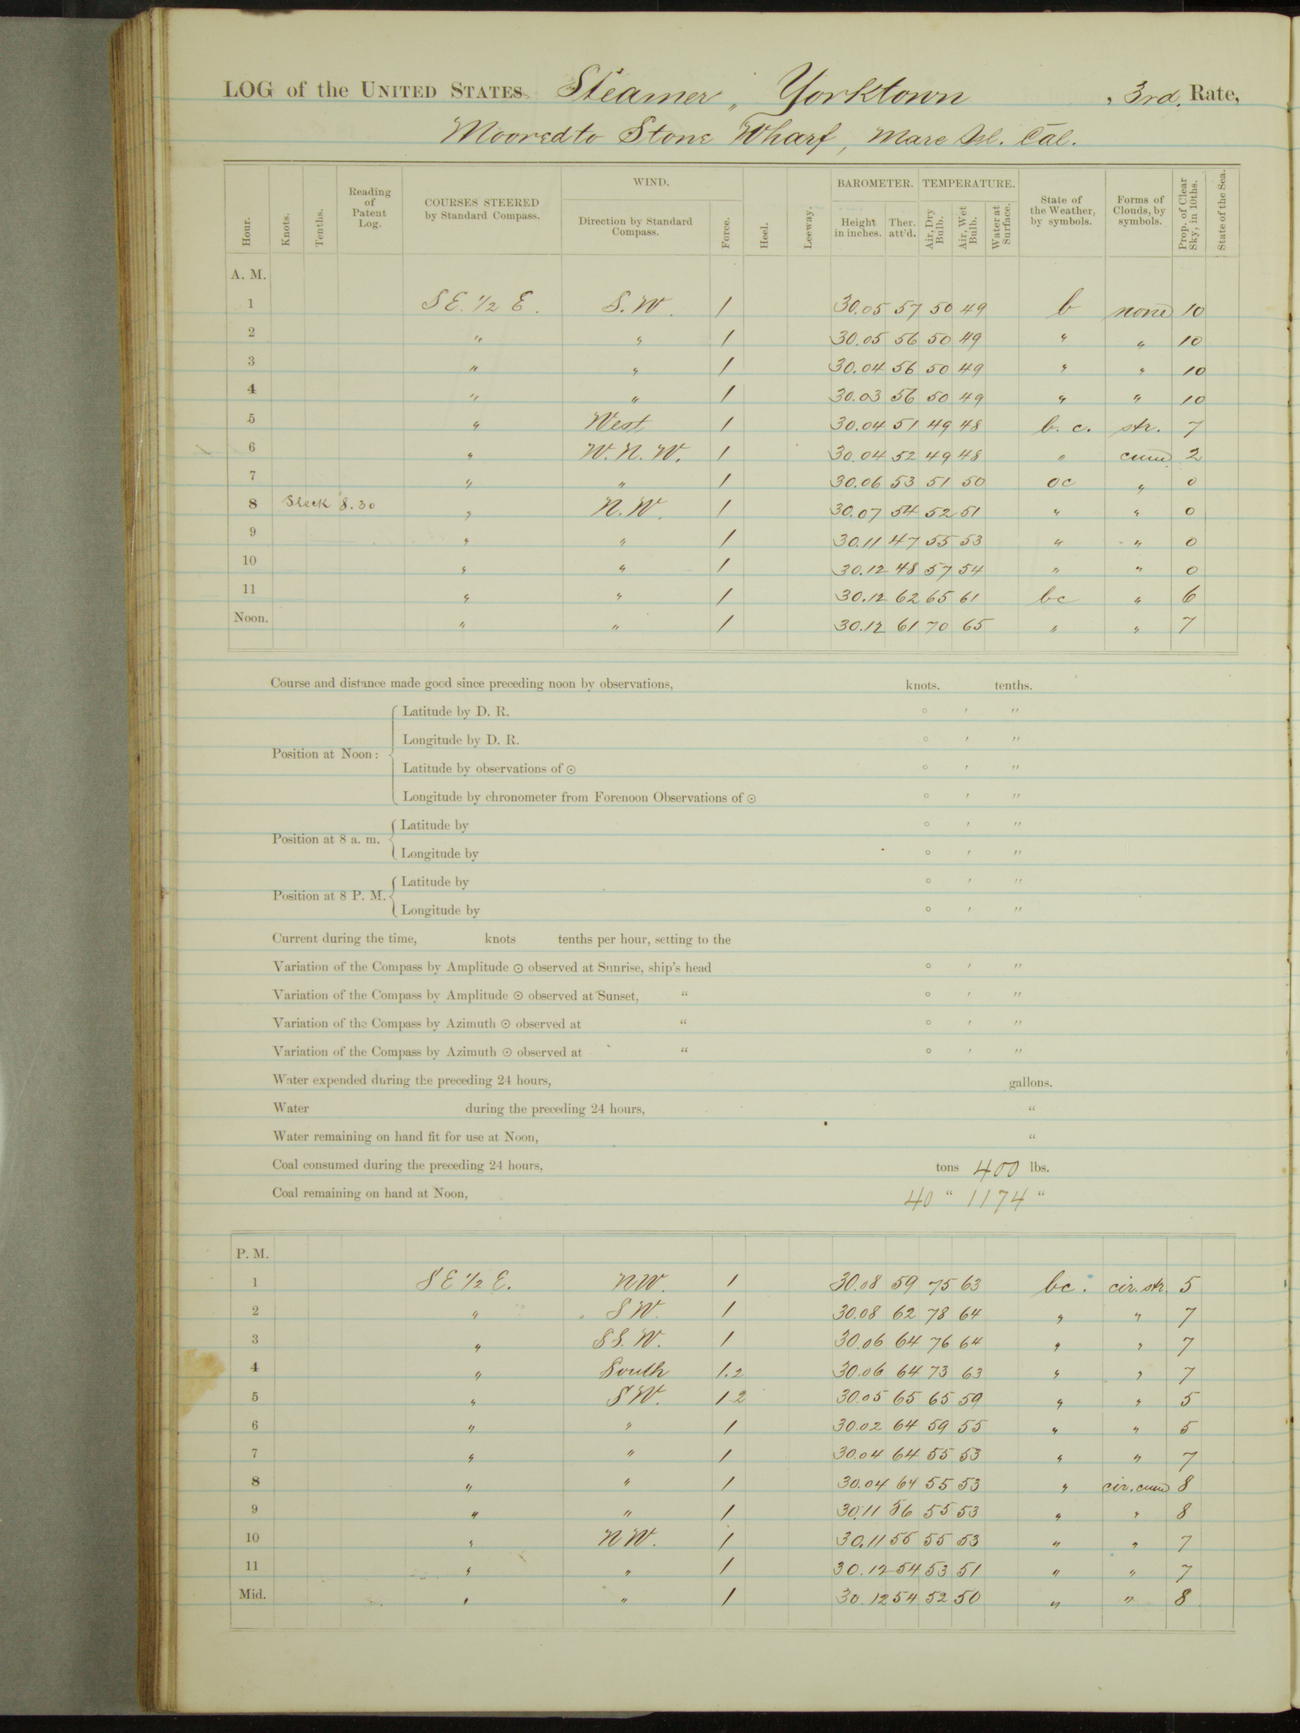 LOG of the UNITED STATES Steamer „ Yorktown , 3rd. Rate,
Moored to Stone Wharf, Mare Isl. Cal.
Hour. Knots. Tenths. Reading of Patent Log. COURSES STEERED by Standard Compass. WIND. Direction by Standard Compass. Force. Heel. Leeway. BAROMETER. Height in inches. Ther. att'd. TEMPERATURE. Air, Dry Bulb. Air, Wet Bulb. Water at Surface. State of the Weather, by symbols. Forms of Clouds, by symbols. Prop. of Clear Sky, in 10ths. State of the Sea.
A. M.
1 SE. 1/2 E. S.W. 1 30.05 57 50 49 b none 10
2 " " 1 30.05 56 50 49 " " 10
3 " " 1 30.04 56 50 49 " " 10
4 " " 1 30.03 56 50 49 " " 10
5 " West 1 30.04 51 49 48 b. c. str. 7
6 " W.N.W. 1 30.04 52 49 48 " cum 2
7 " " 1 30.06 53 51 50 oc " 0
8 Sleek 8.30 " N.W. 1 30.07 54 52 51 " " 0
9 " " 1 30.11 47 55 53 " " 0
10 " " 1 30.12 48 57 54 " " 0
11 " " 1 30.12 62 65 61 bc " 6
Noon. " " 1 30.12 61 70 65 " " 7
Course and distance made good since preceding noon by observations, knots. tenths.
Position at Noon: Latitude by D. R. ° ′ ″
Longitude by D. R. ° ′ ″
Latitude by observations of ☉ ° ′ ″
Longitude by chronometer from Forenoon Observations of ☉ ° ′ ″
Position at 8 a. m. Latitude by ° ′ ″
Longitude by ° ′ ″
Position at 8 P. M. Latitude by ° ′ ″
Longitude by ° ′ ″
Current during the time, knots tenths per hour, setting to the
Variation of the Compass by Amplitude ☉ observed at Sunrise, ship's head ° ′ ″
Variation of the Compass by Amplitude ☉ observed at Sunset, “ ° ′ ″
Variation of the Compass by Azimuth ☉ observed at “ ° ′ ″
Variation of the Compass by Azimuth ☉ observed at “ ° ′ ″
Water expended during the preceding 24 hours, gallons.
Water during the preceding 24 hours, “
Water remaining on hand fit for use at Noon, “
Coal consumed during the preceding 24 hours, tons 400 lbs.
Coal remaining on hand at Noon, 40 “ 1174 “
P. M.
1 SE 1/2 E. NW. 1 30.08 59 75 63 bc. cir. str. 5
2 " SW 1 30.08 62 78 64 " " 7
3 " SS.W. 1 30.06 64 76 64 " " 7
4 " South 1.2 30.06 64 73 63 " " 7
5 " SW. 1 2 30.05 65 65 59 " " 5
6 " " 1 30.02 64 59 55 " " 5
7 " " 1 30.04 64 55 53 " " 7
8 " " 1 30.04 64 55 53 " cir. cum 8
9 " " 1 30.11 56 55 53 " " 8
10 " NW. 1 30.11 55 55 53 " " 7
11 " " 1 30.12 54 53 51 " " 7
Mid. " " 1 30.12 54 52 50 " " 8